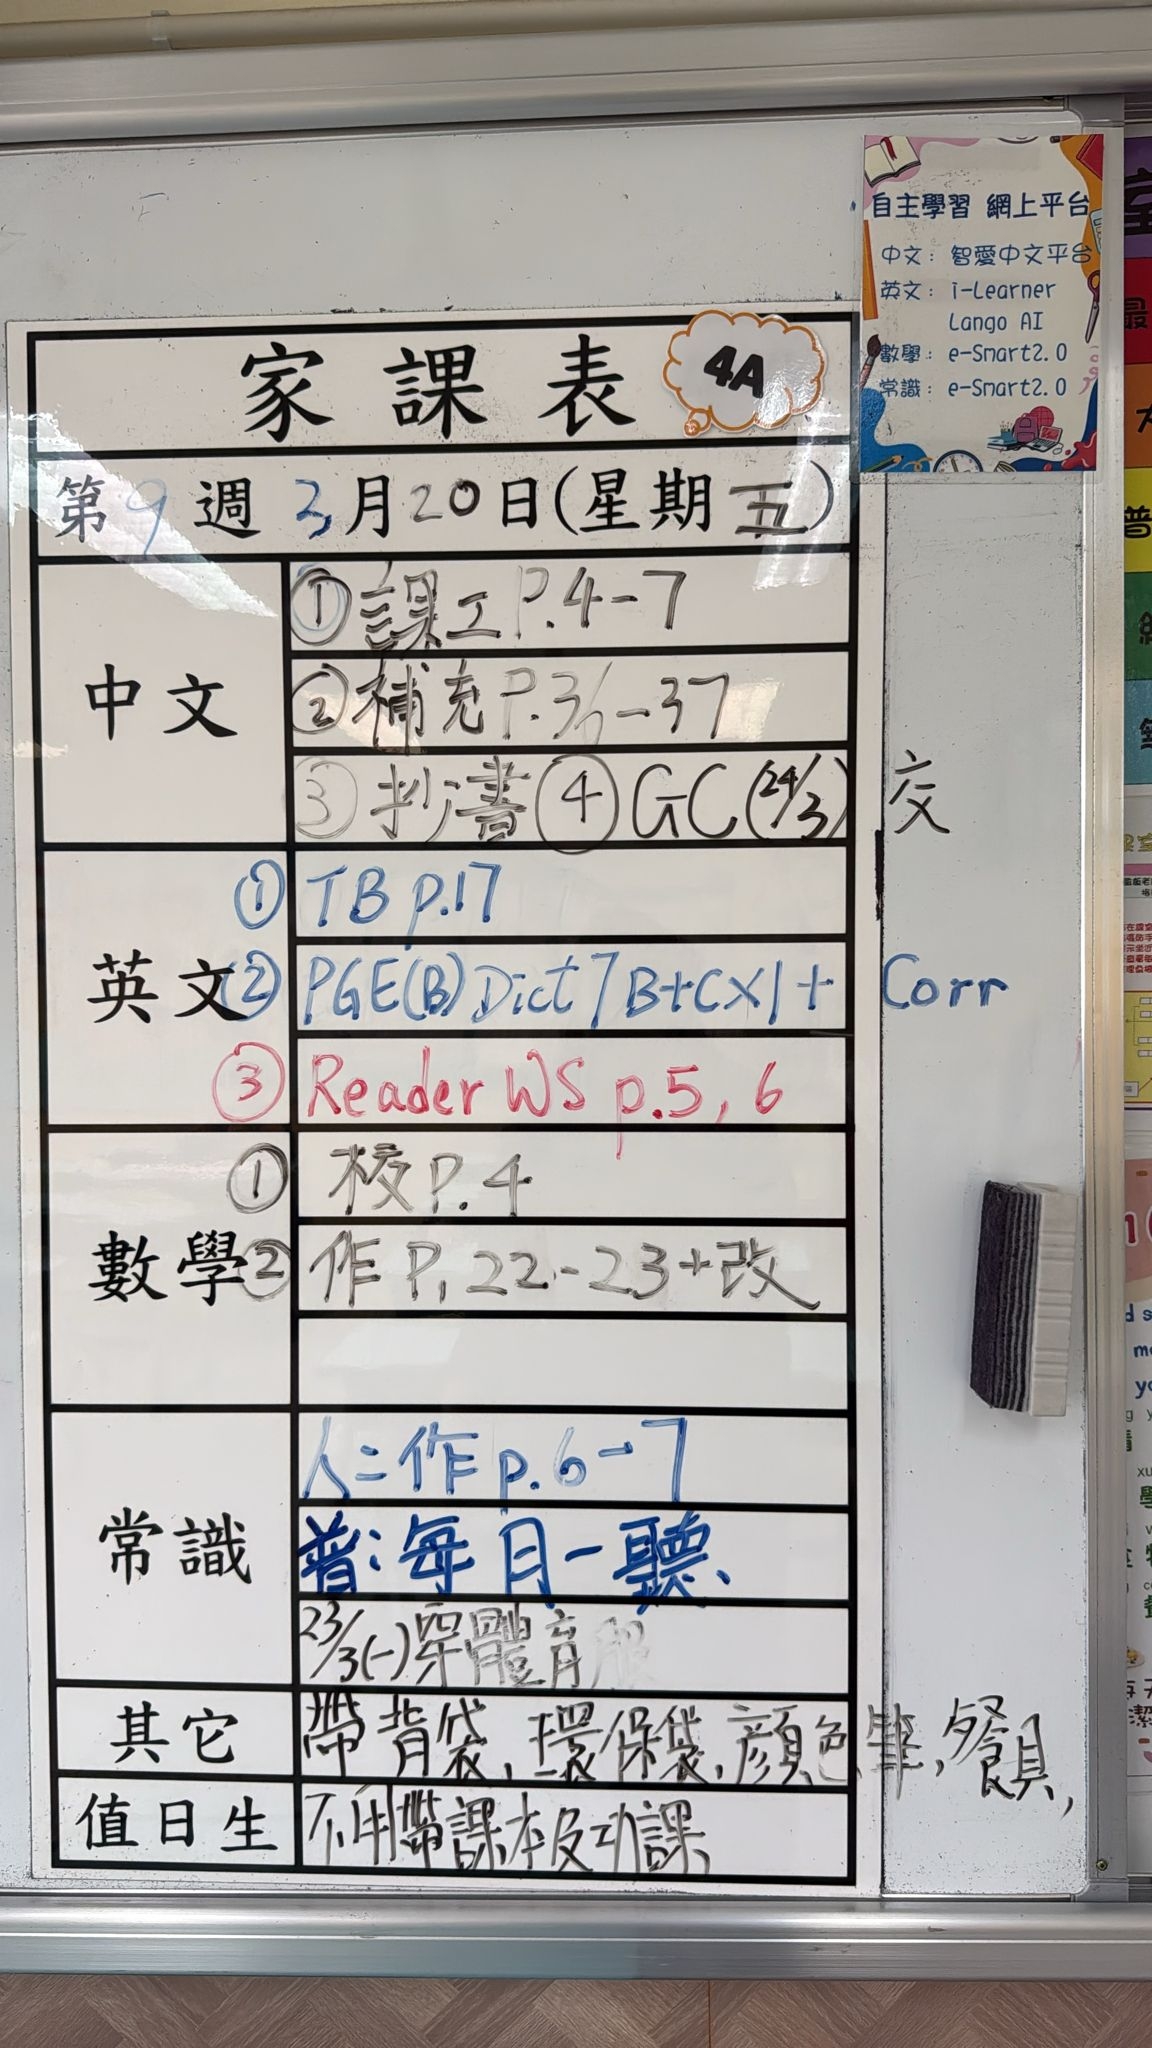 自主學習 網上平台
中文：智愛中文平台
英文：i-Learner
Lango AI
數學：e-Smart2.0
常識：e-Smart2.0
家課表
4A
第9週 3月20日(星期五)
中文
①課工P.4-7
②補充P.36-37
③抄書④GC(24/3)交
英文
① TB p.17
② PGE(B) Dict 7 B+C×1 + Corr
③ Reader WS p.5, 6
數學
① 校P.4
② 作P.22-23+改
常識
人二作p.6-7
普：每月一聽
23/3(一)穿體育服
其它
帶背袋,環保袋,顏色筆,餐具,
值日生
不用帶課本及功課